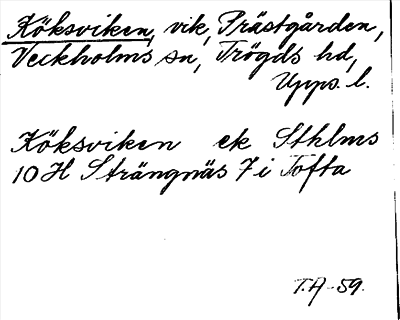 Köksviken, vik, Prästgården,
Veckholms sn, Trögds hd,
Upps. l.
Köksviken ek Sthlms
10 H Strängnäs 7 i Tofta
T.A-59.